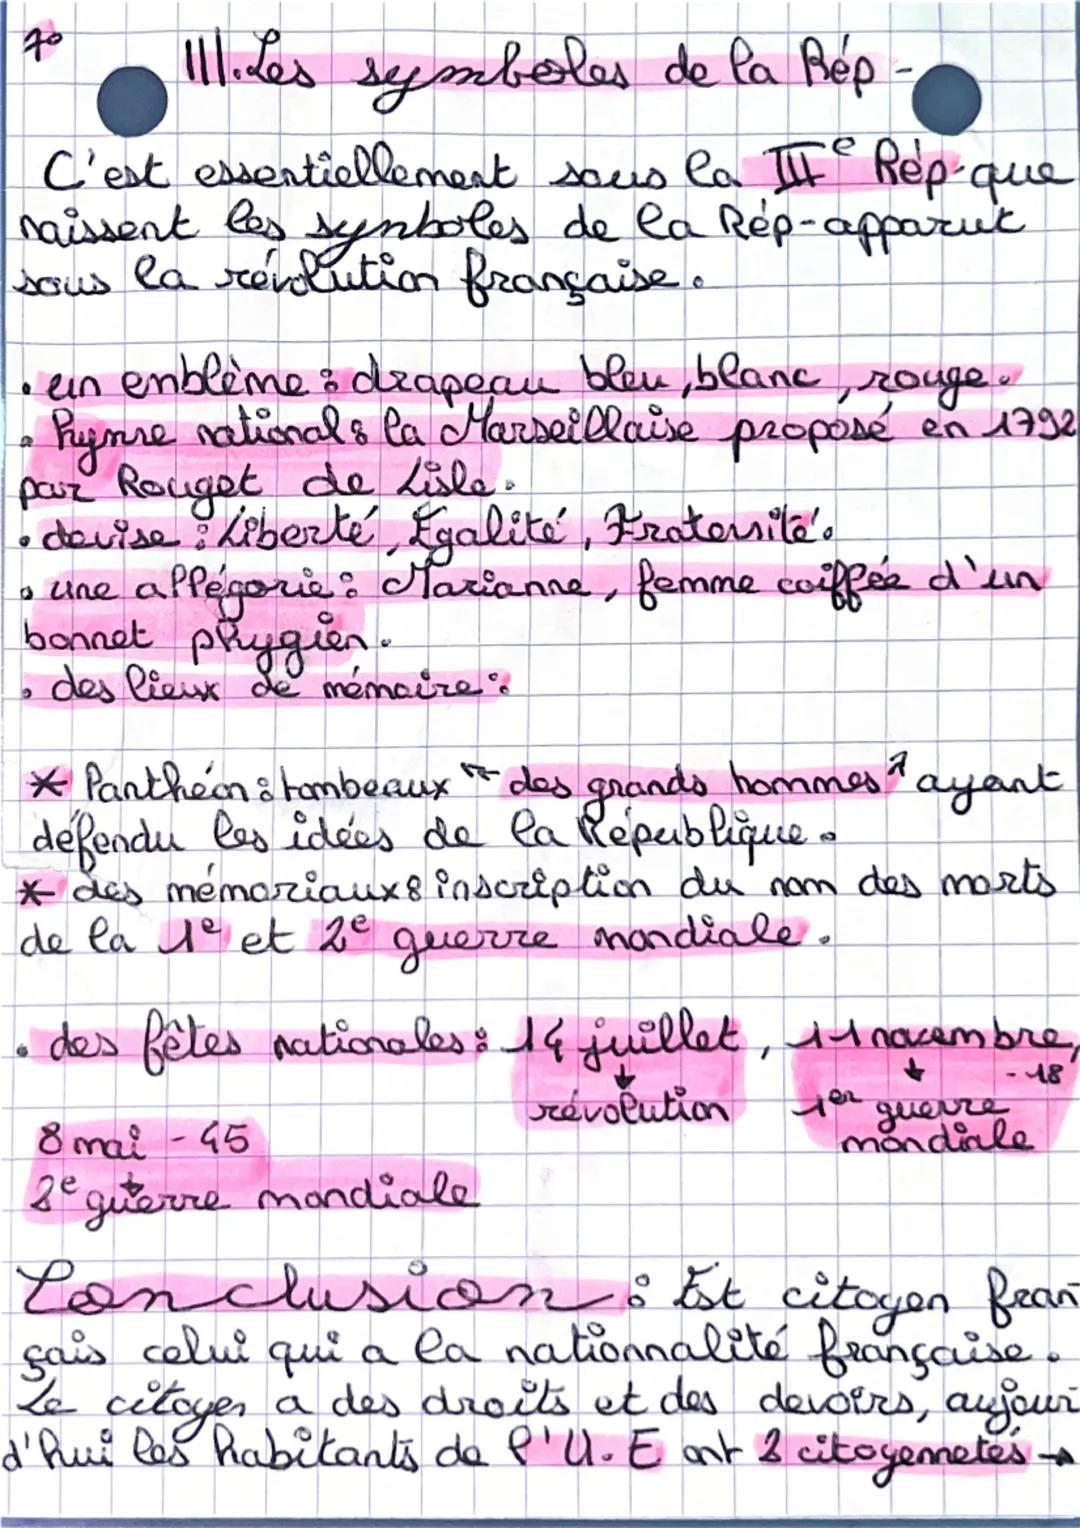 7°
III. Les symboles de la Rép-
C'est essentiellement sous la IIIe Rép-que
naissent les symboles de la Rép-apparut
sous la révolution française.
• un emblème : drapeau bleu, blanc, rouge.
• hymne national : la Marseillaise proposé en 1792
par Rouget de Lisle.
• devise : Liberté, Égalité, Fraternité.
• une allégorie : Marianne, femme coiffée d'un
bonnet phygien.
• des lieux de mémaire :
* Panthéon : tombeaux "des grands hommes" ayant
défendu les idées de la République.
* des mémoriaux : inscription du nom des morts
de la 1e et 2e guerre mondiale.
• des fêtes nationales : 14 juillet, 11 novembre,
↓ ↓ -18
révolution 1er guerre
mondiale
8 mai - 45
↓
2e guerre mondiale
Conclusion : Est citoyen fran-
çais celui qui a la nationnalité française.
Le citoyen a des droits et des devoirs, aujour-
d'hui les habitants de l'U.E ont 2 citoyennetés →